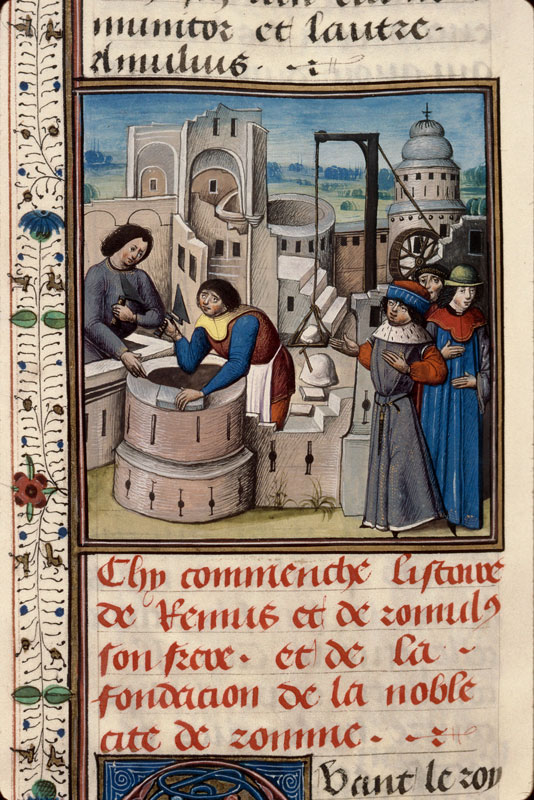 munitor et lautre.
Amulius.
Chy commenche listoire
de Remus et de romulꝰ
son frere. et de la
fondacion de la noble
cite de romme.
Vant le roy